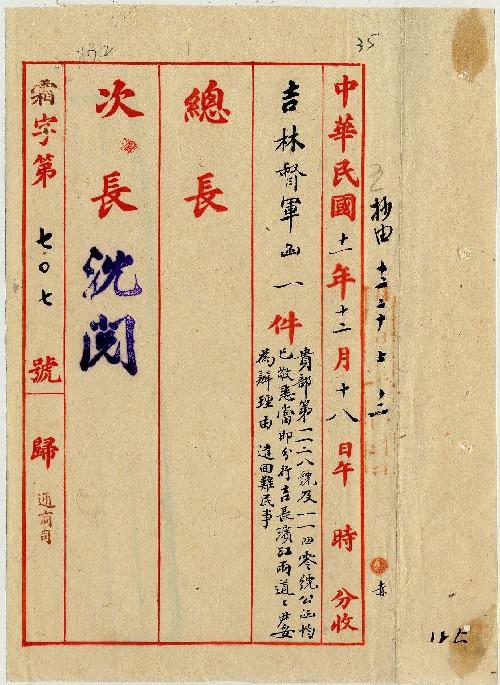 35
抄由 十二 二十七
中華民國十一年十二月十八日午 時 分收
吉林督軍函一件
貴部第一一二八號及一一四零號公函均
已敬悉當即分行吉長濱江兩道道尹妥
為辦理由 遣回難民事
總長
次長 沈閱
霜字第七〇七號 歸 通商司